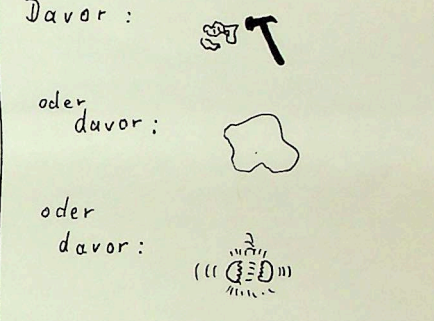 Davor :
oder
davor :
oder
davor :
2